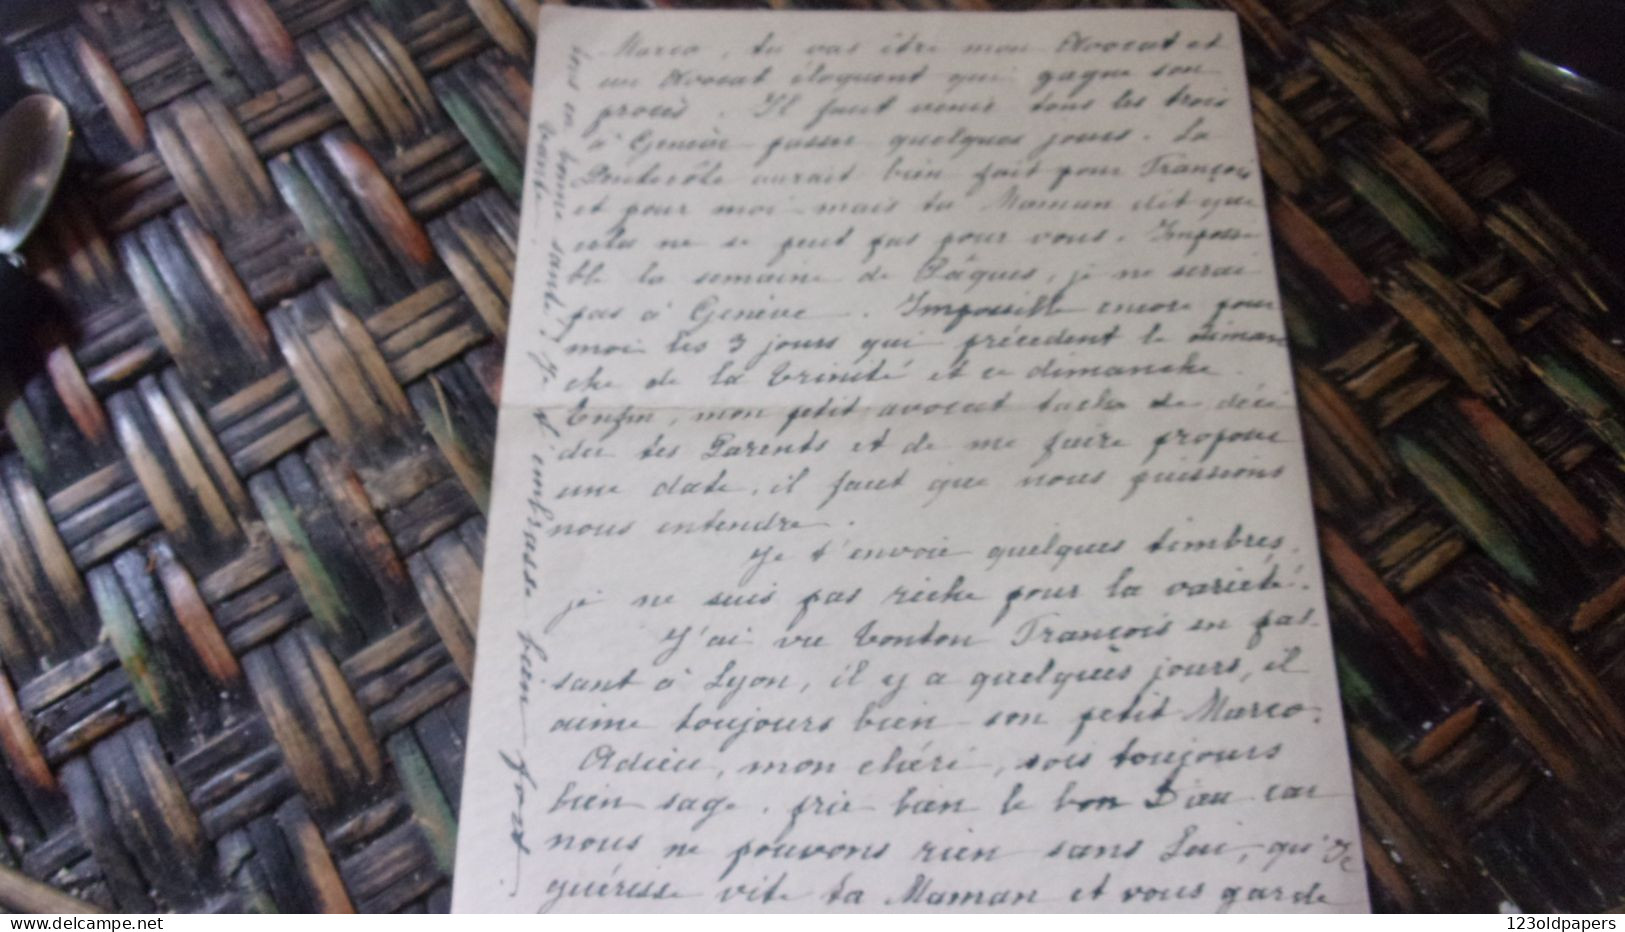 Marco, tu vas être mon Avocat et
un Avocat éloquent qui gagne son
procès. Il faut venir tous les trois
à Genève passer quelques jours. La
Pentecôte aurait bien fait pour François
et pour moi mais ta Maman dit que
cela ne se peut pas pour vous. Impossi
ble la semaine de Pâques, je ne serai
pas à Genève. Impossible encore pour
moi les 3 jours qui précèdent le diman
che de la trinité et ce dimanche.
Enfin, mon petit avocat tache de déci
der tes Parents et de me faire proposer
une date, il faut que nous puissions
nous entendre.
Je t'envoie quelques timbres,
je ne suis pas riche pour la varieté!
J'ai vu tonton François en pas
sant à Lyon, il y a quelques jours, il
aime toujours bien son petit Marco.
Adieu, mon chéri, sois toujours
bien sage. prie bien le bon Dieu car
nous ne pouvons rien sans Lui, qu'Il
guérisse vite ta Maman et vous garde
tous en bonne santé. Je t'embrasse bien fort.
tante.
www.delcampe.net
123oldpapers